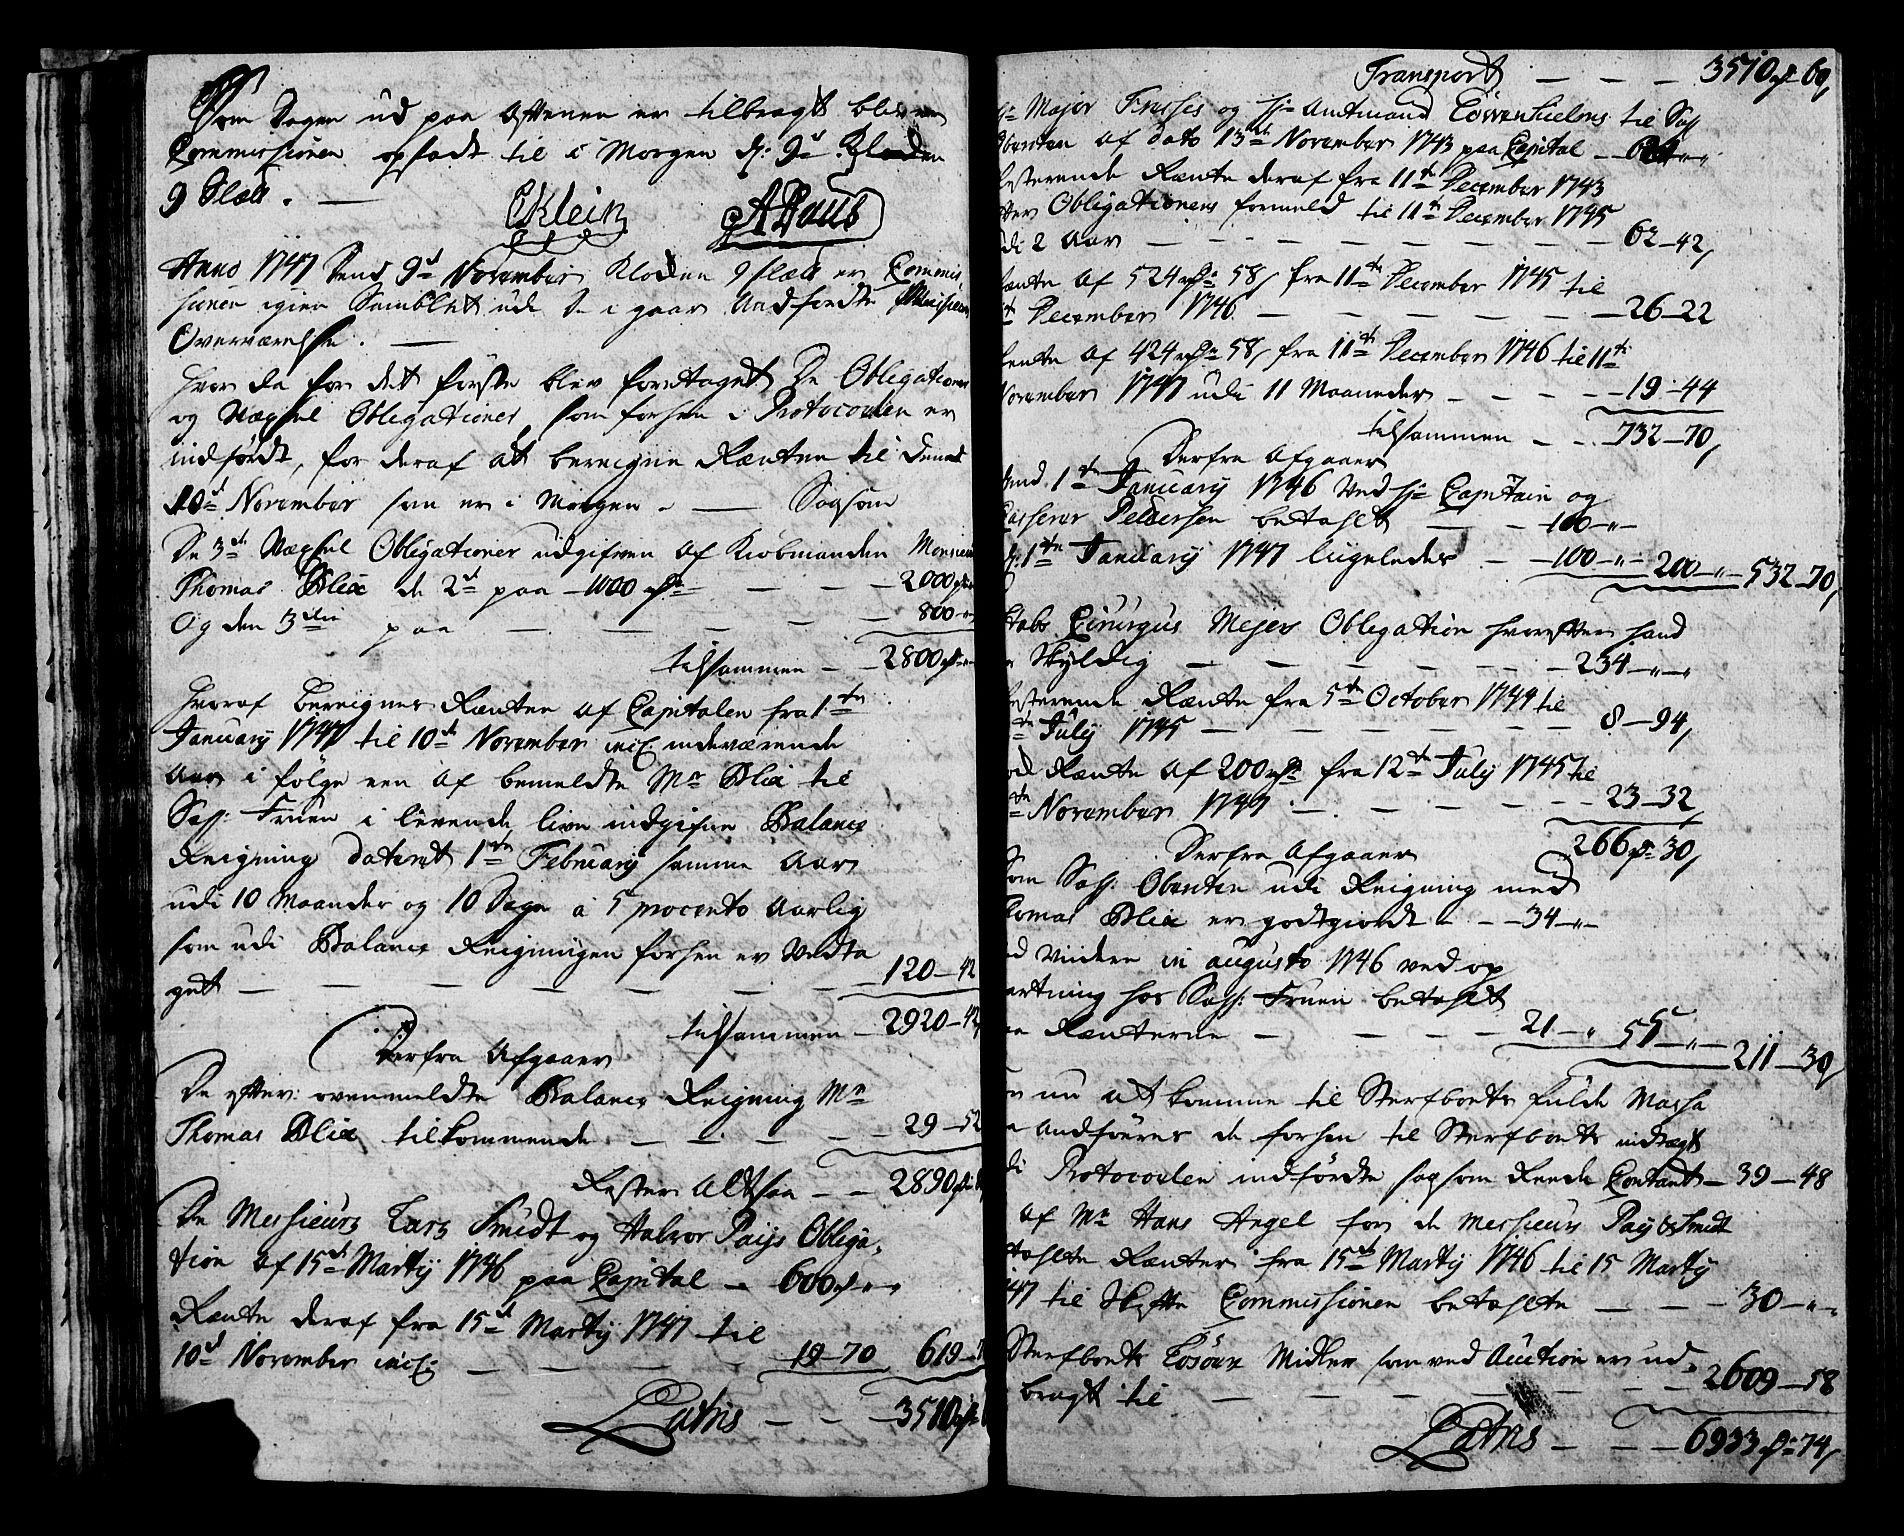 Som Dagen ud paa Aftenen er tilbragt blev
Commissionen opsadt til i Morgen d: 9de Klocken
9 Slett. —
CKlein A Paus
Anno 1747 Dend 9de November Klocken 9 slett er Commis
sionen igien Samblet udi de i gaar Andførdte
Overværelse. —
Hvor da for det første blev foretaget De Obligationer
og Vexsel Obligationer som forhen i Protocollen er
indførdt, for deraf at beregne Renten til
10de November som er i Morgen. — Saasom
De 3de Vexsel Obligationer udgifven af Kiøbmanden Monsieur
Thomas Blix de 2de paa 1000 rdr — — 2000 rdr
Og den 3die paa — — — 800
tilsammen — 2800 rdr
Hvoraf beregnes Renten af Capitalen fra 1te
January 1747 til 10de November incl. indeværende
Aar i følge een af bemeldte Mr Blix til
Sal: Fruen i levende live indgifne Balance
Reigning dateret 1te February samme Aar
udi 10 Maander og 10 Dage a 5 procento Aarlig
som udi Balance Reigningen forhen er Vedta
get — — — — — 120–42
tilsammen — 2920–42
Derfra Afgaaer
De efter ovenmeldte Balance Reigning Mr
Thomas Blix tilkommende — — — 29–52
Rester Altsaa — — 2890 rdr
De Messieurs Lars Smidt og Halvor Pays Obliga-
tion af 15de Marty 1746 paa Capital — 600 rdr
Rente deraf fra 15de Marty 1747 til
10de November incl: — — — 19–70 619–
Latus — — — 3510 rdr
Transport — — — 3510 rdr 60,
Major Frisses og Hr Amtmand Løvenhielms til Sal
Obersten af dato 13de November 1743 paa Capital — 624
resterende Rente deraf fra 11te December 1743
efter Obligationens formeld til 11te December 1745
udi 2 Aar — — — — 62–42,
Rente af 524 rdr 58, fra 11te December 1745 til
December 1746 — — — 26–22
Rente af 424 rdr 58, fra 11te December 1746 til 11te
November 1747 udi 11 Maaneder — — — 19–44
tilsammen — — 732–70,
Derfra Afgaaer
1te January 1746 Ved Hr Capitain og
Casserer Pedersen betalt — — 100
d: 1te January 1747 ligeledes — 100 200 — 532–70,
Stabs Cirurgus Mejers Obligation hvorefter hand
er Skyldig — — — — 234
resterende Rente fra 5te October 1744 til
July 1745 — — — — 8–94,
Rente af 200 rdr fra 12te July 1745 til
November 1747 — — — 23–32,
266 rdr 30,
Derfra Afgaaer
Som Sal: Obersten udi Reigning med
Thomas Blix er godtgiordt — — 34
videre in augusto 1746 ved op
vartning hos Sal: Fruen betalt
Renterne — — — 21 55 — 211–30
nu at komme til Sterfboets fulde Massa
Andføres de forhen til Sterfboets indtægt
udi Protocollen indførdte saasom Rede Contant — 39–48
af Mr Hans Angel for de Messieurs Pay & Smidt
betalte Renter fra 15de Marty 1746 til 15 Marty
1747 til Skifte Commissionen betalte — — 30
Sterfboets Løsøre Midler som ved Auction er ud-
bragt til — — — — 2609–58
Latus — — — 6933 rdr 74,